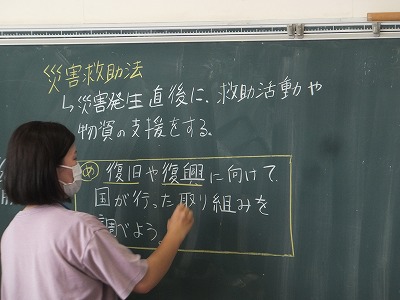 災害救助法
↳災害発生直後に、救助活動や
物資の支援をする。
め 復旧や復興に向けて
国が行った取り組みを
調べよう。